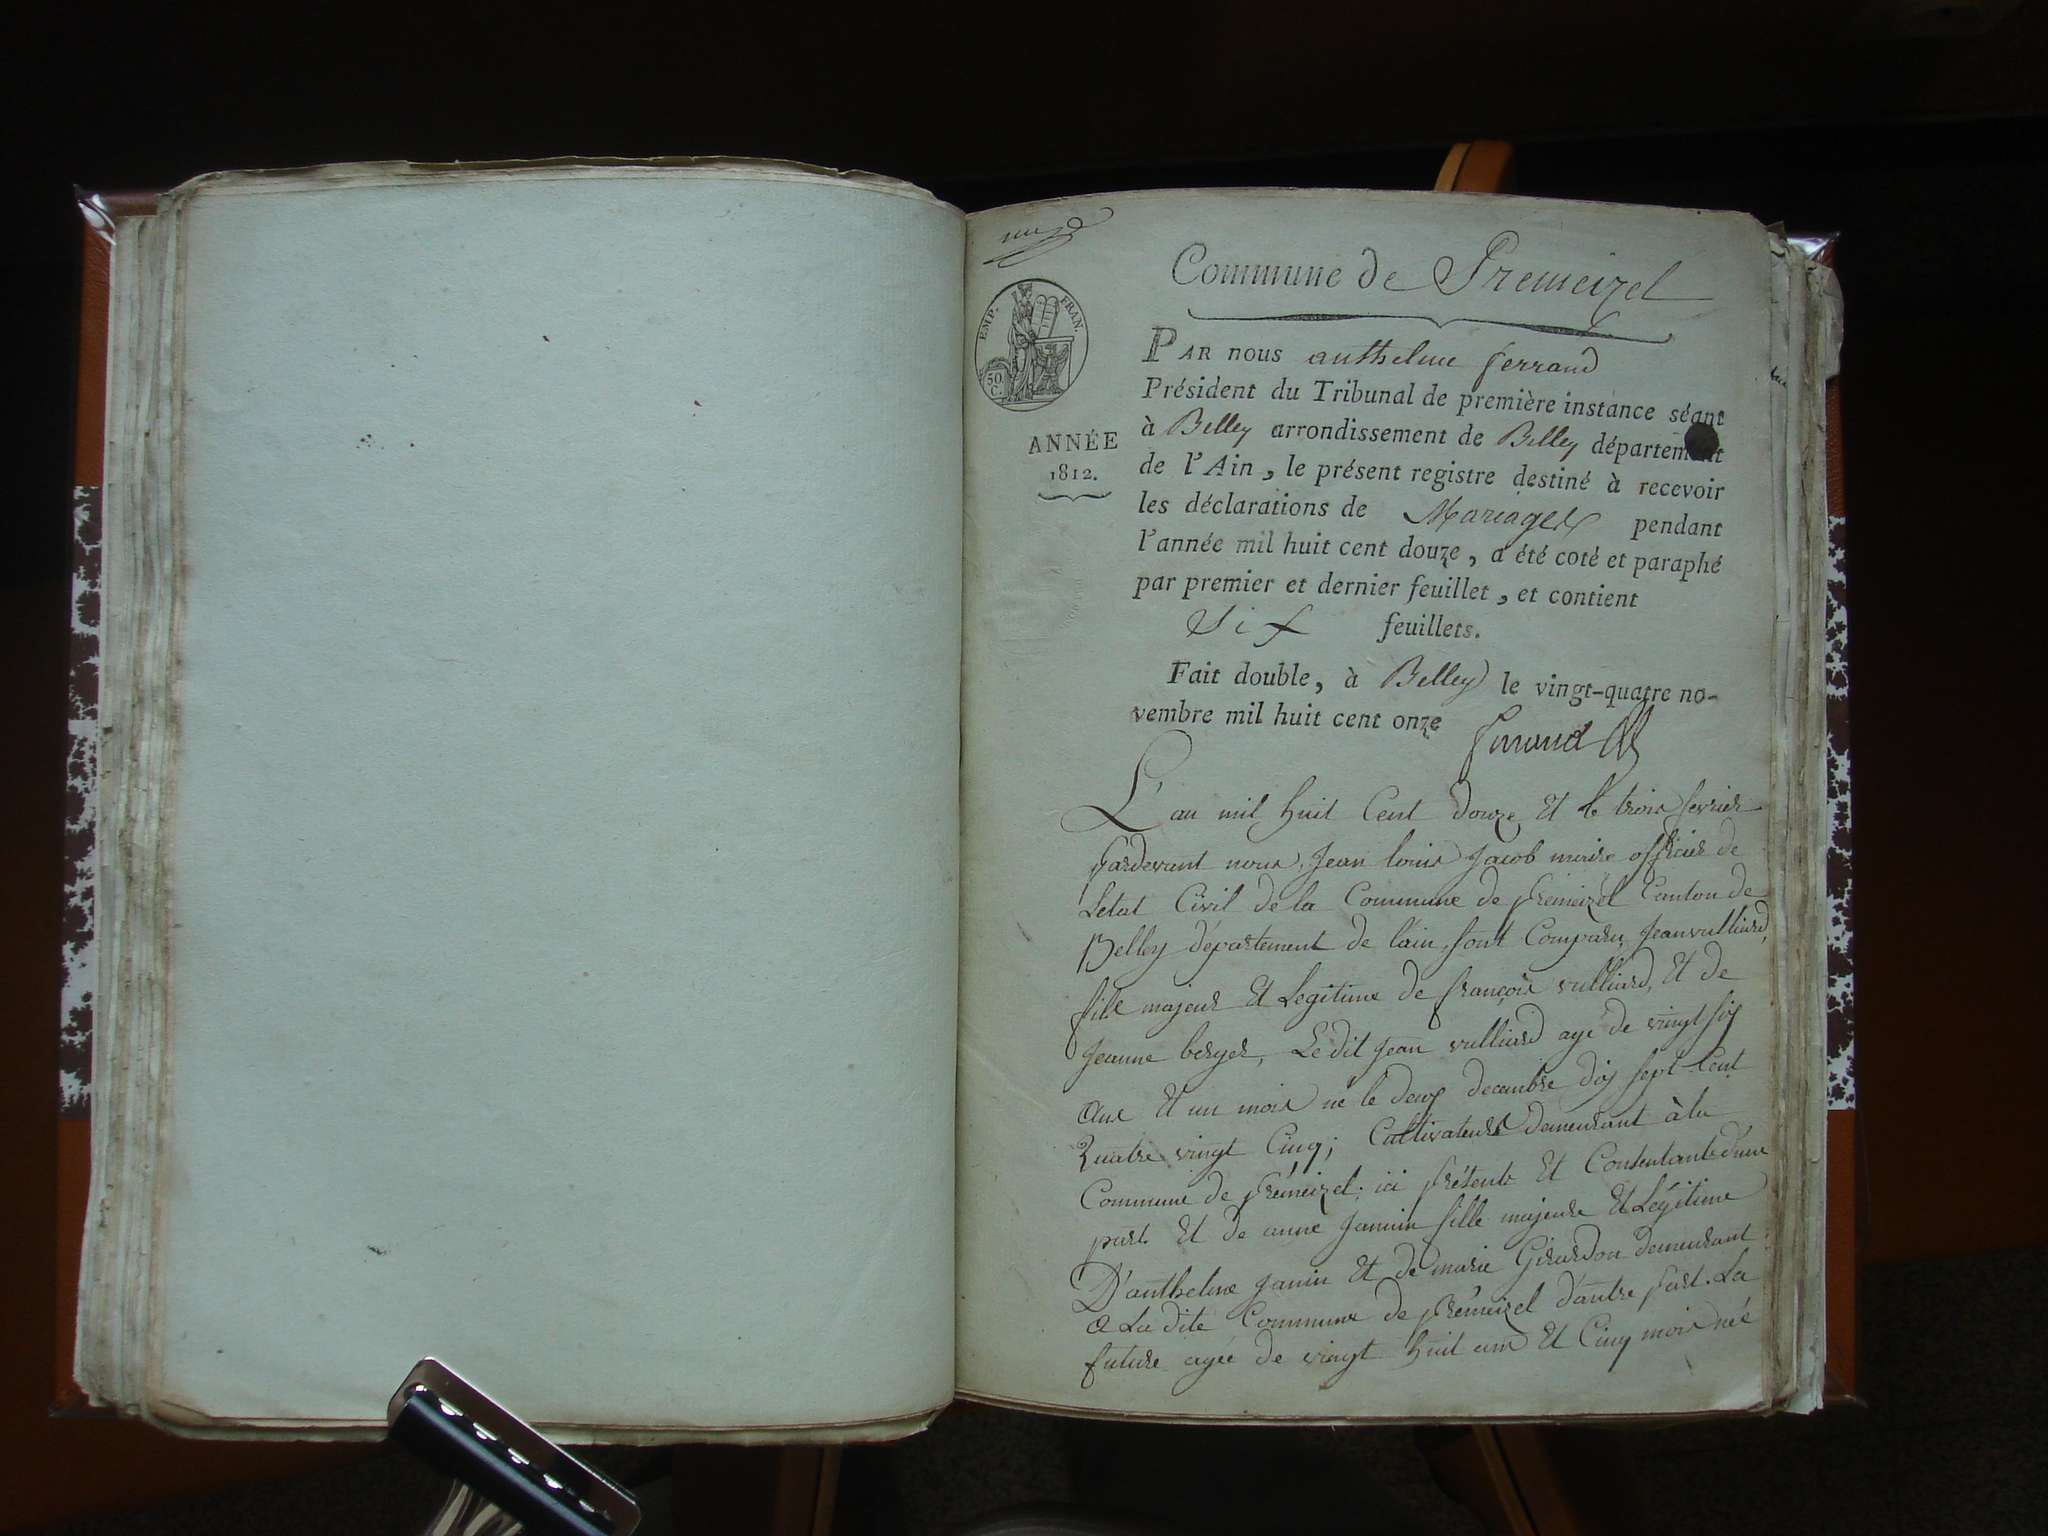 Commune de Premeizel
EMP. FRAN.
50.
C.
ANNÉE
1812.
PAR nous anthelme ferrand
Président du Tribunal de première instance séant
à Belley arrondissement de Belley département
de l'Ain, le présent registre destiné à recevoir
les déclarations de Mariages pendant
l'année mil huit cent douze, a été coté et paraphé
par premier et dernier feuillet, et contient
Six feuillets.
Fait double, à Belley le vingt-quatre no-
vembre mil huit cent onze
L'an mil huit Cent douze Et le trois fevrier
pardevant nous, Jean louis Jacob maire officier de
Letat Civil de la Commune de premeizel Canton de
Belley département de lain, sont Comparu Jean vulliard,
fils majeur Et Legitime de françois vulliard, Et de
Jeanne berger, Le dit Jean vulliard agé de vingt six
ans Et un mois né le deux decembre dix sept Cent
Quatre vingt Cinq; Cultivateurs demeurant à la
Commune de prémeizel; ici présents Et Consentants d'une
part. Et de anne Jannin fille majeure Et Légitime
D'anthelme Janin Et de marie Girardon demeurant
a La dite Commune de prémeizel d'autre part. La
future agée de vingt huit ans Et Cinq mois née